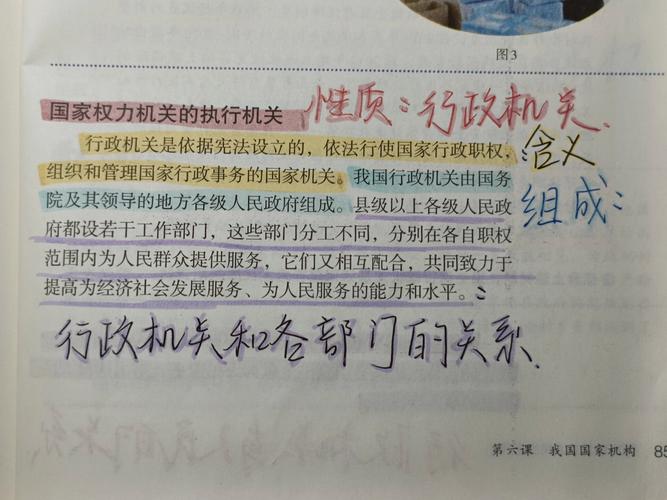 图3
国家权力机关的执行机关 性质：行政机关.
行政机关是依据宪法设立的，依法行使国家行政职权，
组织和管理国家行政事务的国家机关。我国行政机关由国务
：含义
院及其领导的地方各级人民政府组成。县级以上各级人民政
组成：
府都设若干工作部门，这些部门分工不同，分别在各自职权
范围内为人民群众提供服务，它们又相互配合，共同致力于
提高为经济社会发展服务、为人民服务的能力和水平。：
行政机关和各部门的关系.
第六课 我国国家机构 85